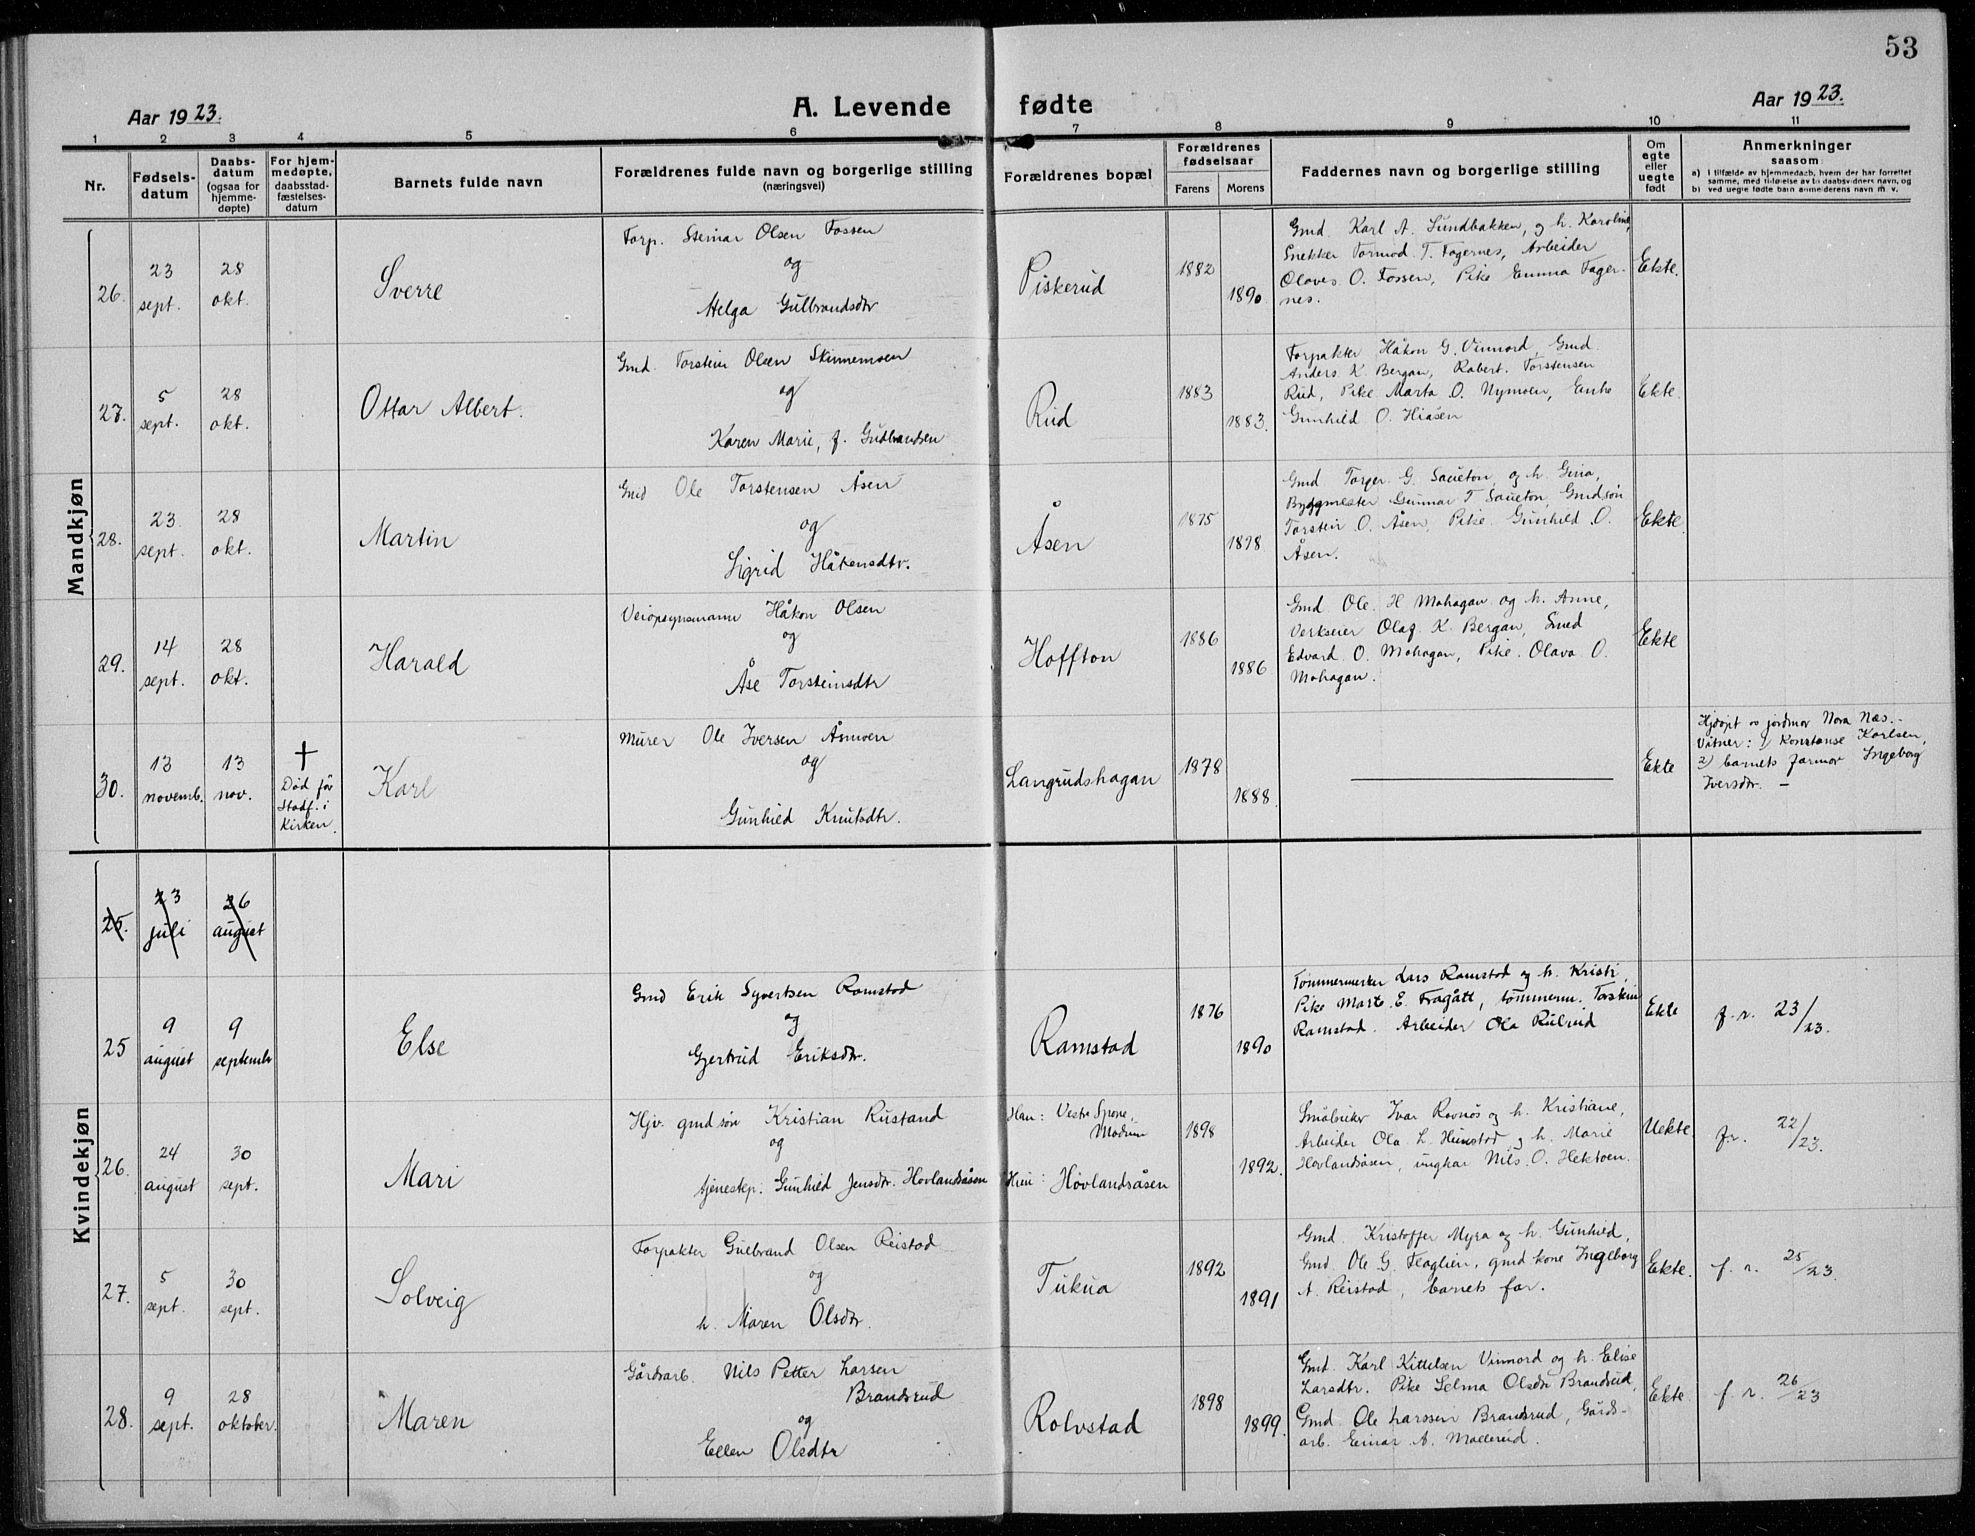 53
Aar 1923.
A. Levende fødte
Aar 1923.
1 2 3 4 5 6 7 8 9 10 11
Nr.
Fødsels-
datum
Daabs-
datum
(ogsaa for
hjemme-
døpte)
For hjem-
medøpte,
daabsstad-
fæstelses-
datum
Barnets fulde navn
Forældrenes fulde navn og borgerlige stilling
(næringsvei)
Forældrenes bopæl
Forældrenes
fødselsaar
Farens Morens
Faddernes navn og borgerlige stilling
Om
egte
eller
uegte
født
Anmerkninger
saasom:
a) I tilfælde av hjemmedaab, hvem der har forrettet
samme, med tilføielse av to daabsvidners navn, og
b) ved uegte fødte barn anmelderens navn m. v.
Mandkjøn
26.
23
sept.
28
okt.
Sverre
Forp. Steinar Olsen Fossen
og
Helga Gulbrandsdtr
Piskerud
1882
1890
Gmd. Karl A. Sundbakken, og h. Karoline,
Snekker Tormod T. Fagernes, Arbeider
Olaves O. Fossen, Pike Emma Fager-
nes.
Ekte.
27.
5
sept.
28
okt.
Ottar Albert.
Gmd. Torstein Olsen Skinnemoen
og
Karen Marie, f. Gudbrandsen
Rud
1883
1883.
Forpakter Håkon G. Vinnord, Gmd.
Anders K. Bergan, Robert Torstensen
Rud, Pike Marta O. Nymoen, Enke
Gunhild O. Hiåsen
Ekte.
28.
23
sept.
28
okt.
Martin
Gmd Ole Torstensen Åsen
og
Sigrid Håkensdtr.
Åsen
1875
1878
Gmd Torger G. Saueton, og h. Gina,
Byggmester Gunnar T Saueton, Gmdsøn
Torstein O. Åsen, Pike Gunhild O.
Åsen.
Ekte.
29.
14
sept.
28
okt.
Harald
Veiopsynsmann Håkon Olsen
og
Åse Torsteinsdtr
Hoffton
1886
1886
Gmd Ole H Mohagan og h. Anne,
Verkseier Olaf K. Bergan, Smed
Edvard O. Mohagan, Pike Olava O.
Mohagan.
Ekte
30.
13
novemb.
13
nov.
†
Død før
Stadf. i
Kirken.
Karl
Murer Ole Iversen Åsmoen
og
Gunhild Knutsdtr.
Langrudshagan
1878
1888.
Ekte
Hjdøpt av jordmor Nora Næs.-
Vitner: 1) Konstanse Karlsen,
2) barnets farmor Ingeborg
Iversdtr. -
Kvindekjøn
25.
23
juli
26
august
25
9
august
9
septembr
Else
Gmd Erik Syvertsen Ramstad
og
Gjertrud Eriksdtr.
Ramstad
1876
1890
Tømmermerker Lars Ramstad og h. Kristi,
Pike Marte E. Fragått, tømmerm. Torstein
Ramstad. Arbeider Ola Rulrud
Ekte
f. r. 23/23.
26.
24
august
30
sept.
Mari
Hjv. gmdsøn Kristian Rustand
og
tjenestep. Gunhild Jensdtr. Hovlandsåsen
Han: Vestre Spone,
Modum
Hun: Hovlandsåsen
1898
1892.
Småbruker Ivar Rovnøs og h. Kristiane,
Arbeider Ola L. Hunstad og h. Marie
Hovlandsåsen, ungkar Nils O. Hektoen.
Uekte.
f.r. 22/23.
27.
5
sept.
30
sept.
Solveig
Forpakter Gulbrand Olsen Reistad
og
h. Maren Olsdtr.
Tukua
1892
1891
Gmd. Kristoffer Myra og h. Gunhild,
Gmd. Ole G. Flaglien, gmd kone Ingeborg
A. Reistad, barnets far.
Ekte.
f. r. 25/23.
28.
9
sept.
28
oktober.
Maren
Gårdsarb. Nils Petter Larsen
Brandsrud
og
Ellen Olsdtr
Rolvstad
1898
1899.
Gmd. Karl Kittelsen Vinnord og h. Elise
Larsdtr. Pike Selma Olsdtr Brandsrud,
Gmd. Ole Larssen Brandsrud, Gårds-
arb. Einar A. Møllerud.
Ekte.
f. r. 26/23